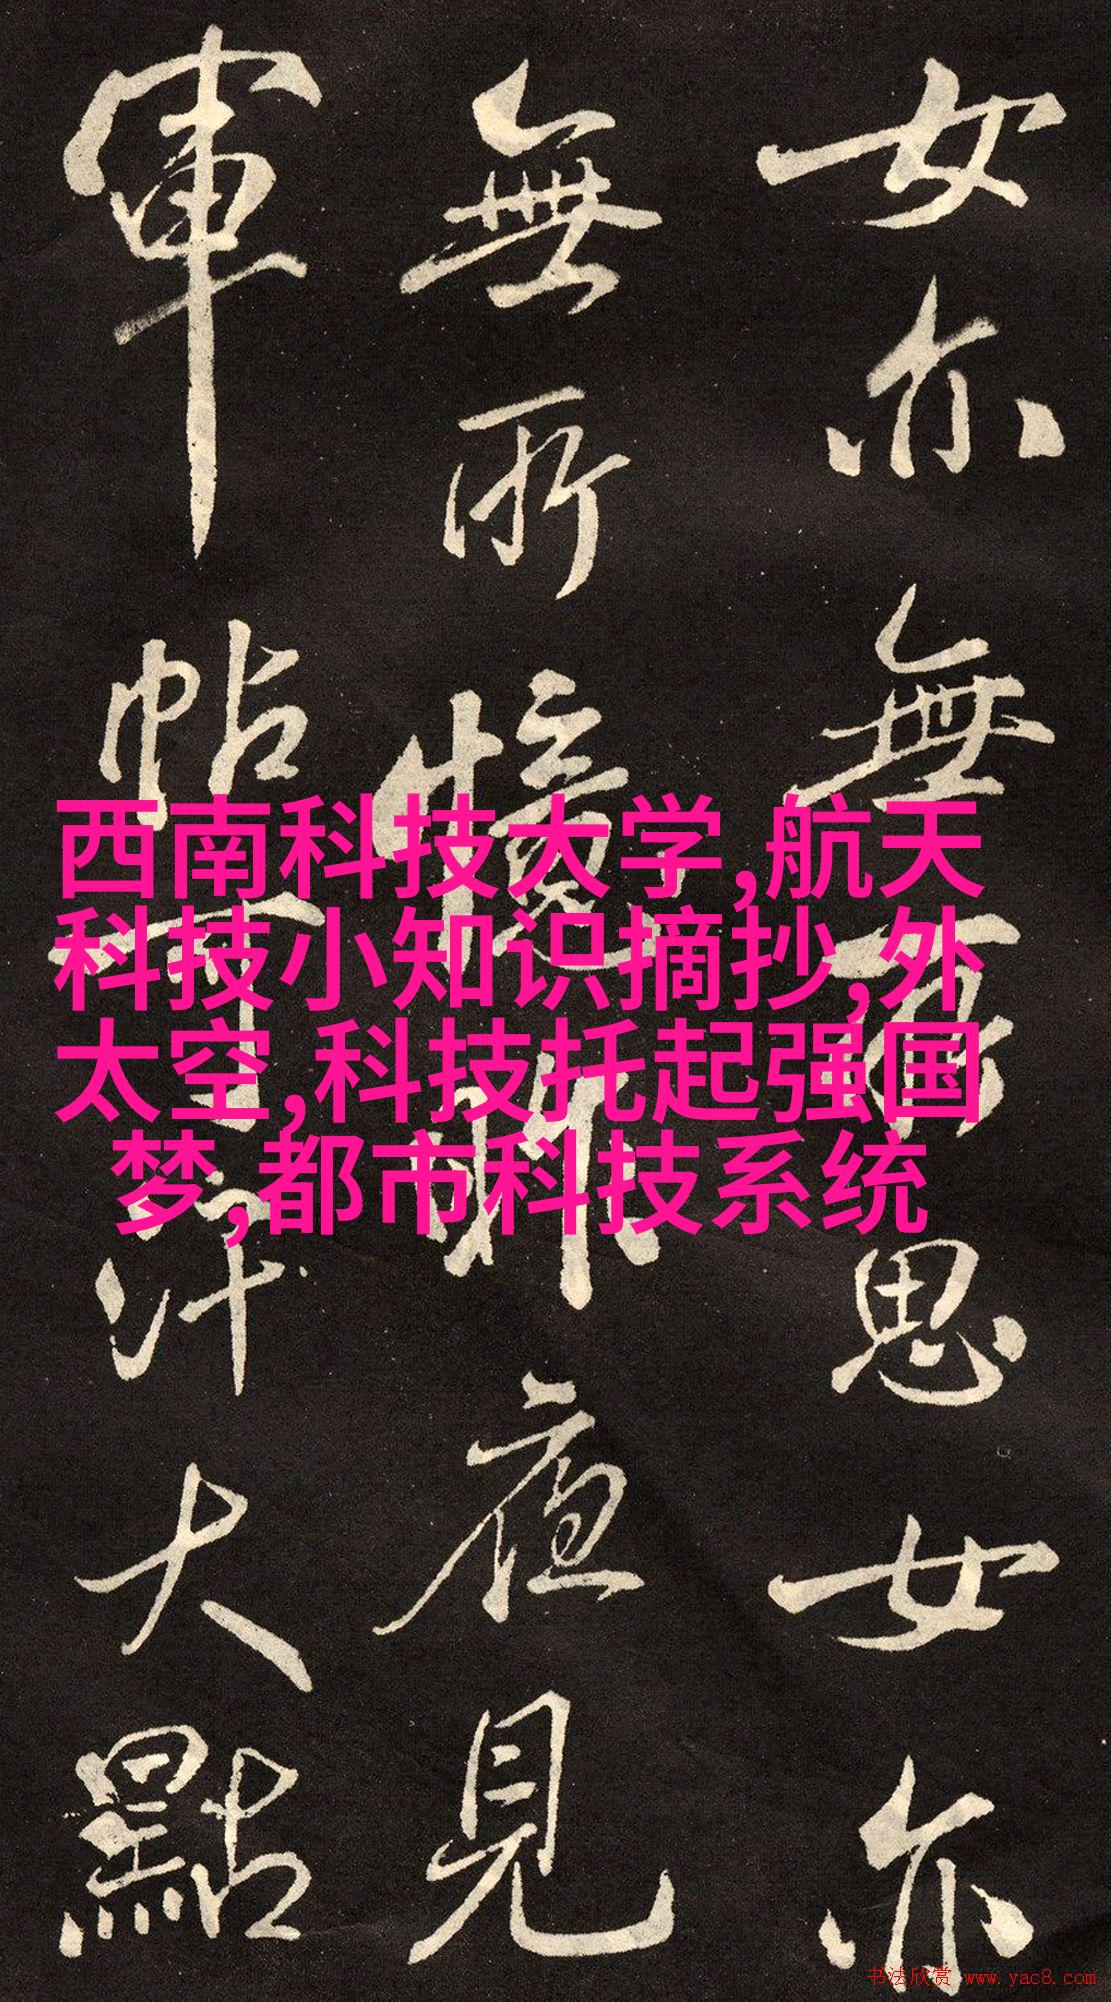 女亦無所思女亦
無所憶昨夜見
軍帖可汗大點
西南科技大学,航天
科技小知识摘抄,外
太空,科技托起强国
梦,都市科技系统
书法欣赏 www.yac8.com